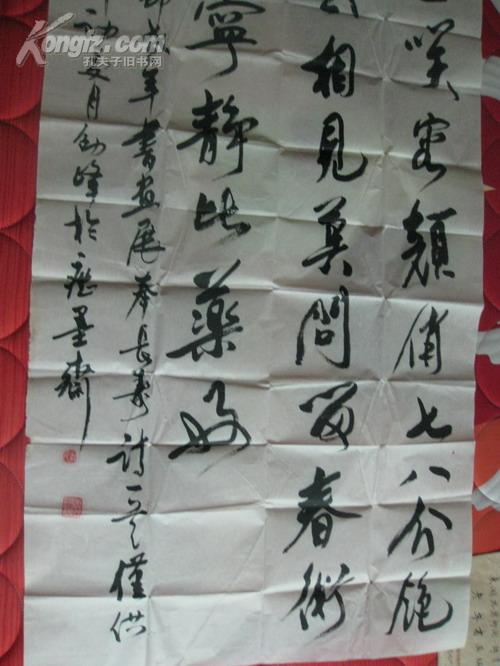 Kongfz.com
孔夫子旧书网
笑容顏俏七八分飽
相見莫問留春術
寧靜比藥好
年書畫展奉長壽詩一首僅供
月劍峰於墨齋